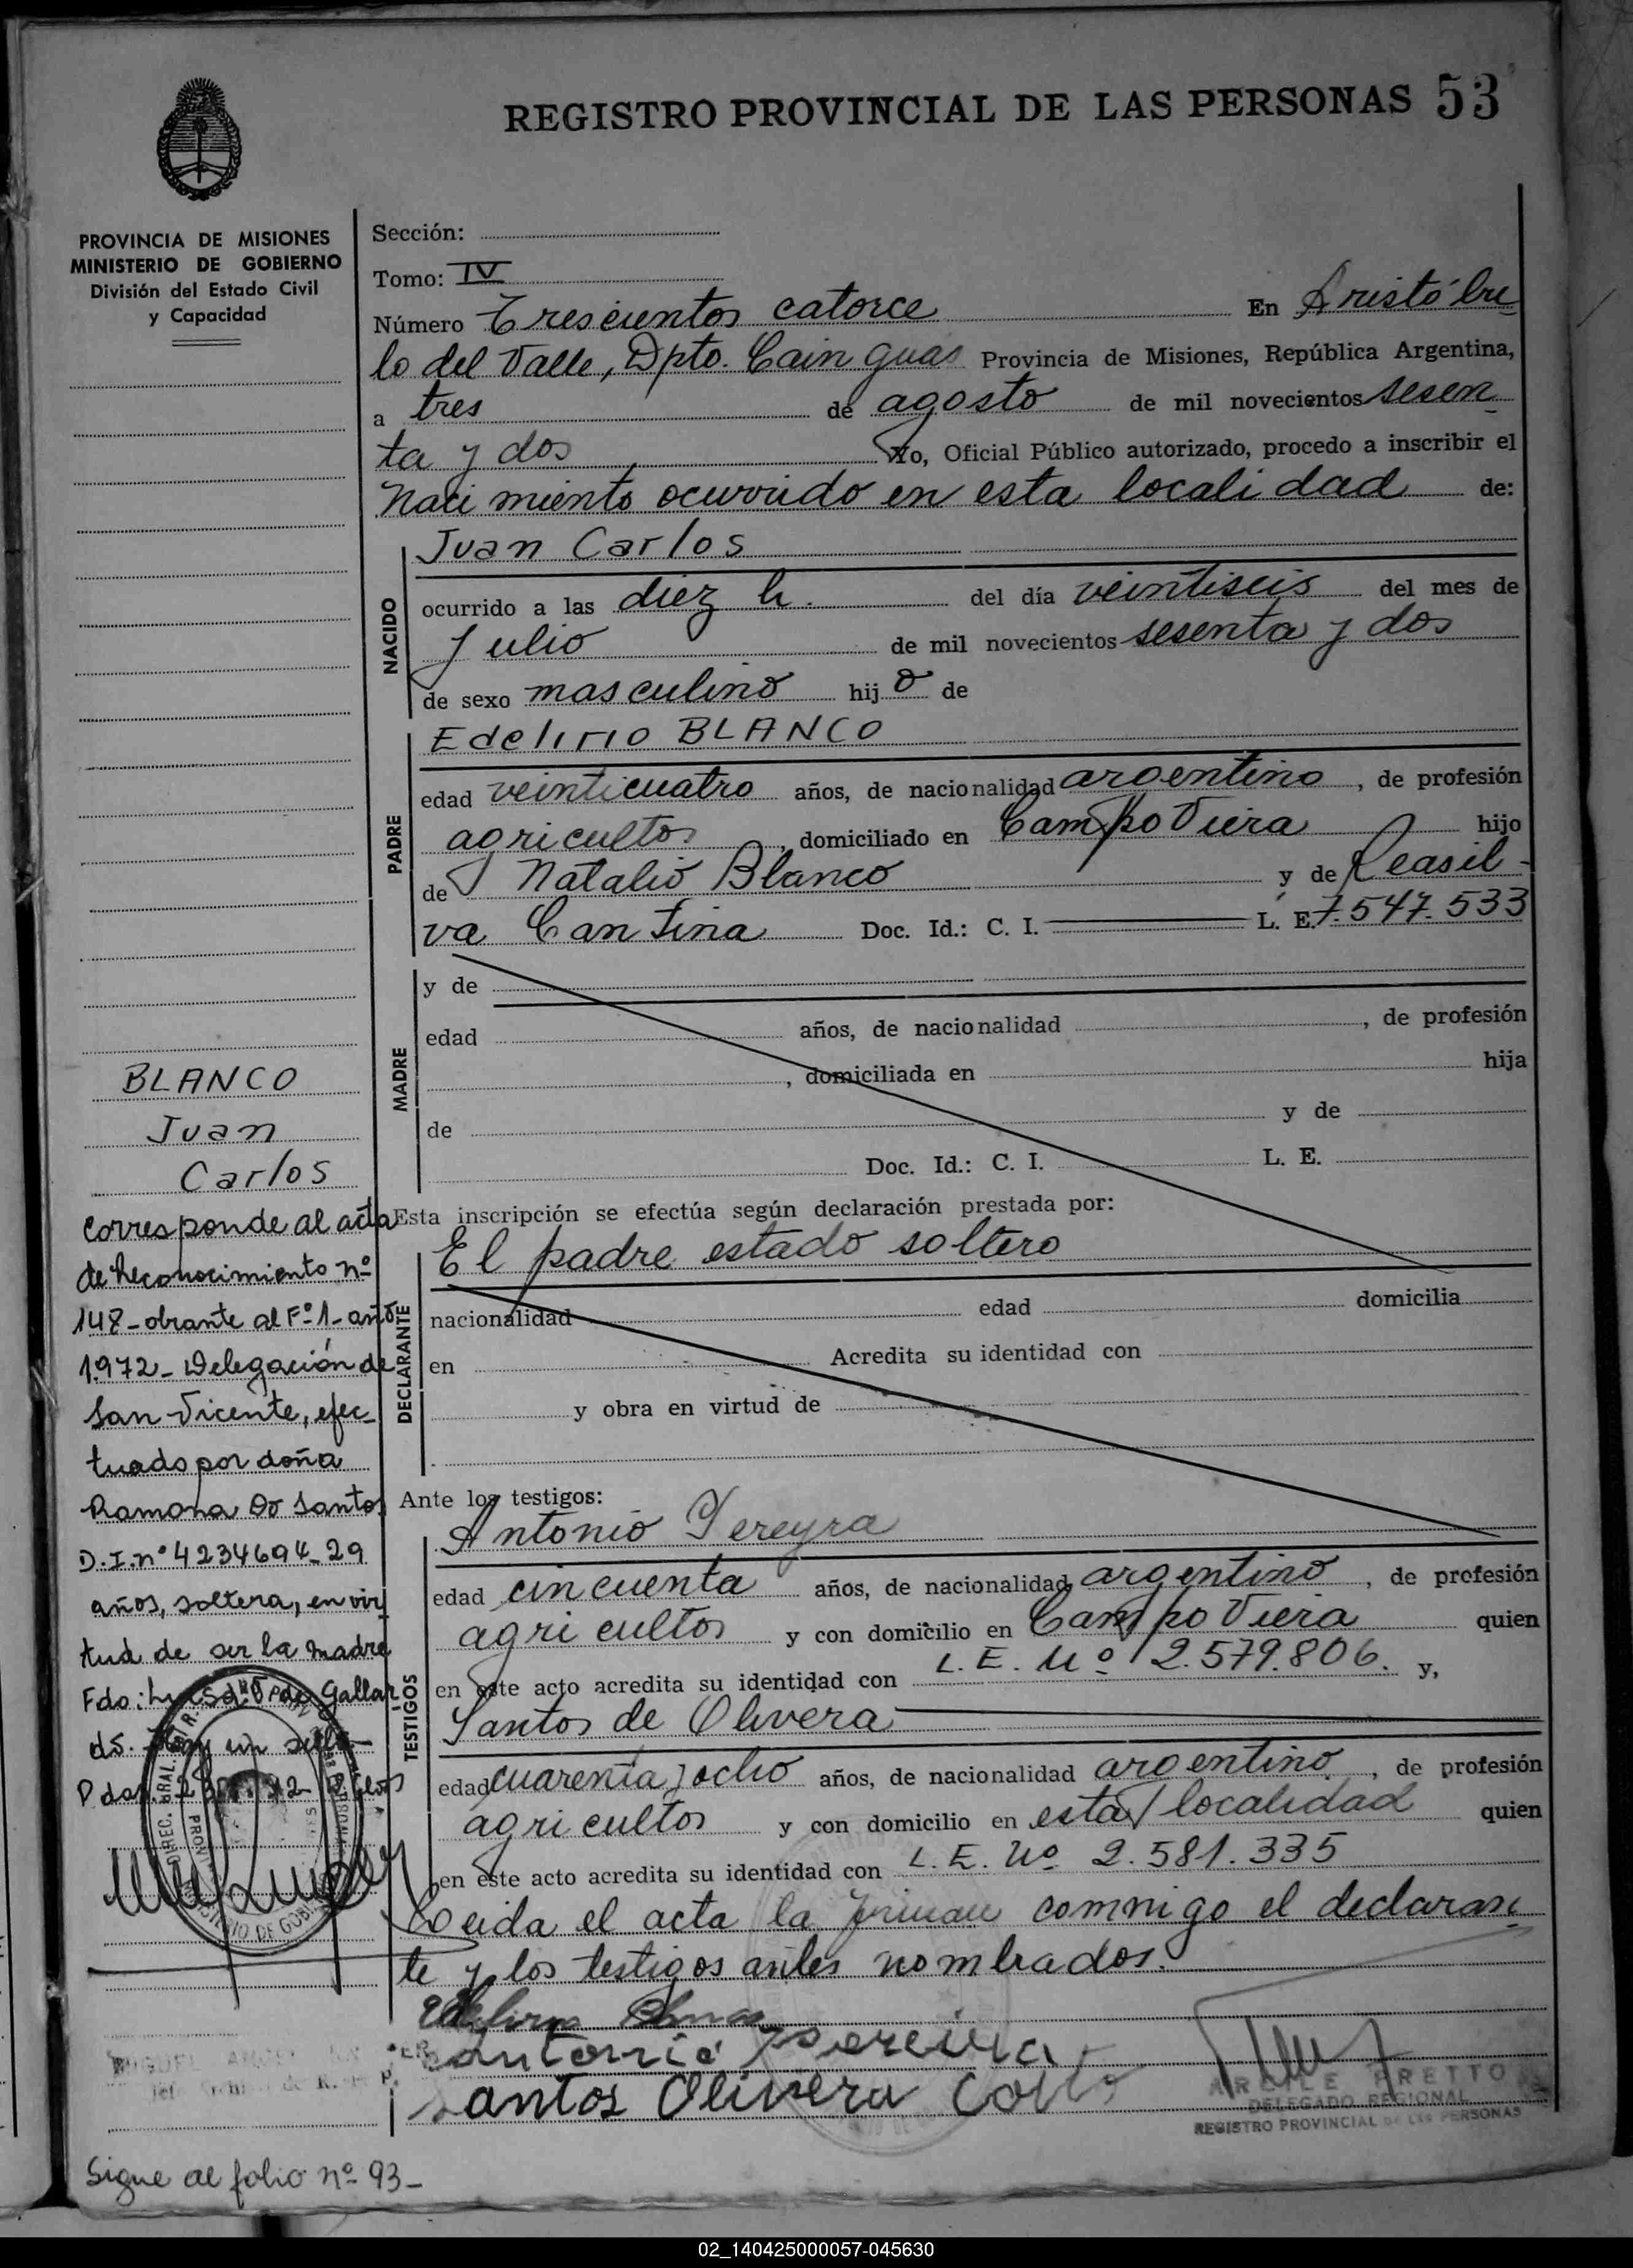 REGISTRO PROVINCIAL DE LAS PERSONAS 53
PROVINCIA DE MISIONES
MINISTERIO DE GOBIERNO
División del Estado Civil
y Capacidad
Sección:
Tomo: IV
Número Trescientos catorce En Aristóbu
lo del Valle, Dpto. Cain guas Provincia de Misiones, República Argentina,
a tres de agosto de mil novecientos sesen
ta y dos Yo, Oficial Público autorizado, procedo a inscribir el
Naci miento ocurrido en esta locali dad de:
NACIDO
Juan Carlos
ocurrido a las diez h. del día veintiseis del mes de
Julio de mil novecientos sesenta y dos
de sexo masculino hijo de
PADRE
Edelirio BLANCO
edad veinticuatro años, de nacionalidad argentino, de profesión
agricultor, domiciliado en Campo Viera hijo
de Natalio Blanco y de Reasil
va Cantina Doc. Id.: C. I. L. E. 7.547.533
MADRE
y de
edad años, de nacionalidad , de profesión
, domiciliada en hija
de y de
Doc. Id.: C. I. L. E.
Esta inscripción se efectúa según declaración prestada por:
DECLARANTE
El padre estado soltero
nacionalidad edad domicilia
en Acredita su identidad con
y obra en virtud de
Ante los testigos:
TESTIGOS
Antonio Pereyra
edad cincuenta años, de nacionalidad argentino, de profesión
agri cultor y con domicilio en Campo Viera quien
en este acto acredita su identidad con L. E. Nº 2.579.806. y,
Santos de Olivera
edad cuarenta y ocho años, de nacionalidad argentino, de profesión
agri cultor y con domicilio en esta localidad quien
en este acto acredita su identidad con L. E. Nº 2.581.335
Leida el acta la firman commigo el declaran
te y los testigos antes nombrados.
Antonio Pereira
Santos Olivera
DELEGADO REGIONAL
REGISTRO PROVINCIAL DE LAS PERSONAS
BLANCO
Juan
Carlos
Corresponde al acta
de Reconocimiento nº
148- obrante al Fº 1- año
1.972- Delegación de
San Vicente, efec
tuado por doña
Ramona Do Santos
D.I. nº 4234694-29
años, soltera, en vir
tud de ser la madre
Fdo: Gallar
do. Hay un sello
Pdas.
Sigue al folio nº 93-
02_140425000057-045630